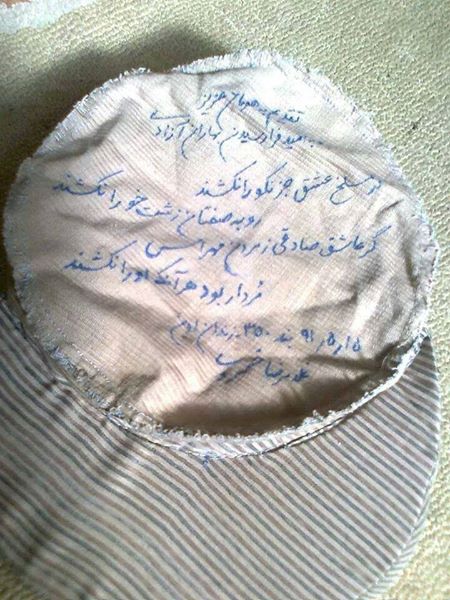 تقدیم به هومان عزیز
به امید فرا رسیدن باران آزادی
در مسلخ عشق جز نکو را نکشند
روبه صفتان زشت خو را نکشند
گر عاشق صادقی ز مردن مهراس
مردار بود هر آنکه او را نکشند
بند ۳۵۰ زندان اوین
علیرضا